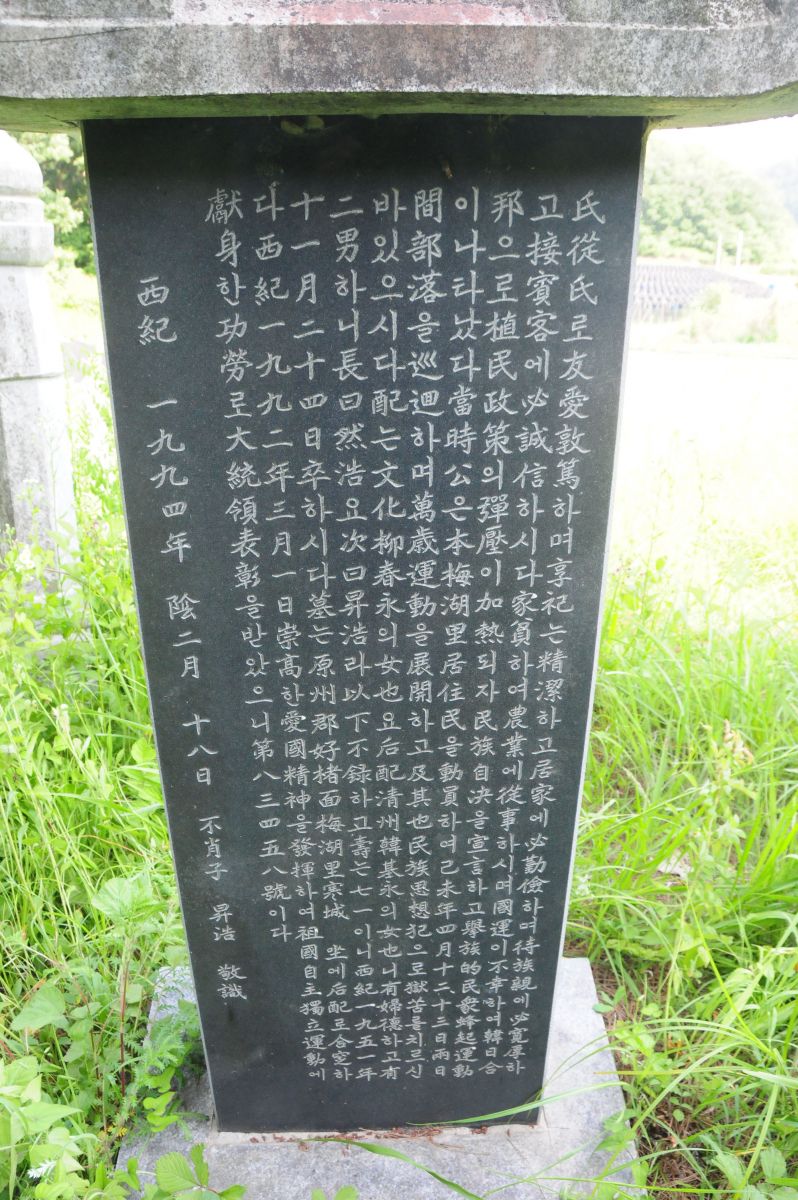 氏從氏로友愛敦篤하며享祀는精潔하고居家에必勤儉하며待族親에必寬厚하
고接賓客에必誠信하시다家貧하여農業에從事하시며國運이不幸하여韓日合
邦으로植民政策의彈壓이加熱되자民族自決을宣言하고擧族的民衆蜂起運動
이나타났다當時公은本梅湖里居住民을動員하여己未年四月十二十三日兩日
間部落을巡迴하며萬歲運動을展開하고及其也民族思想犯으로獄苦를치르신
바있으시다配는文化柳春永의女也요后配淸州韓基永의女也니有婦德하고有
二男하니長曰然浩요次曰昇浩라以下不錄하고壽는七一이니西紀一九五一年
十一月二十四日卒하시다墓는原州郡好楮面梅湖里寒城 坐에后配로合窆하
다西紀一九九二年三月一日崇高한愛國精神을發揮하여祖國自主獨立運動에
獻身한功勞로大統領表彰을받았으니第八三四五八號이다
西紀 一九九四年 陰二月 十八日 不肖子 昇浩 敬識